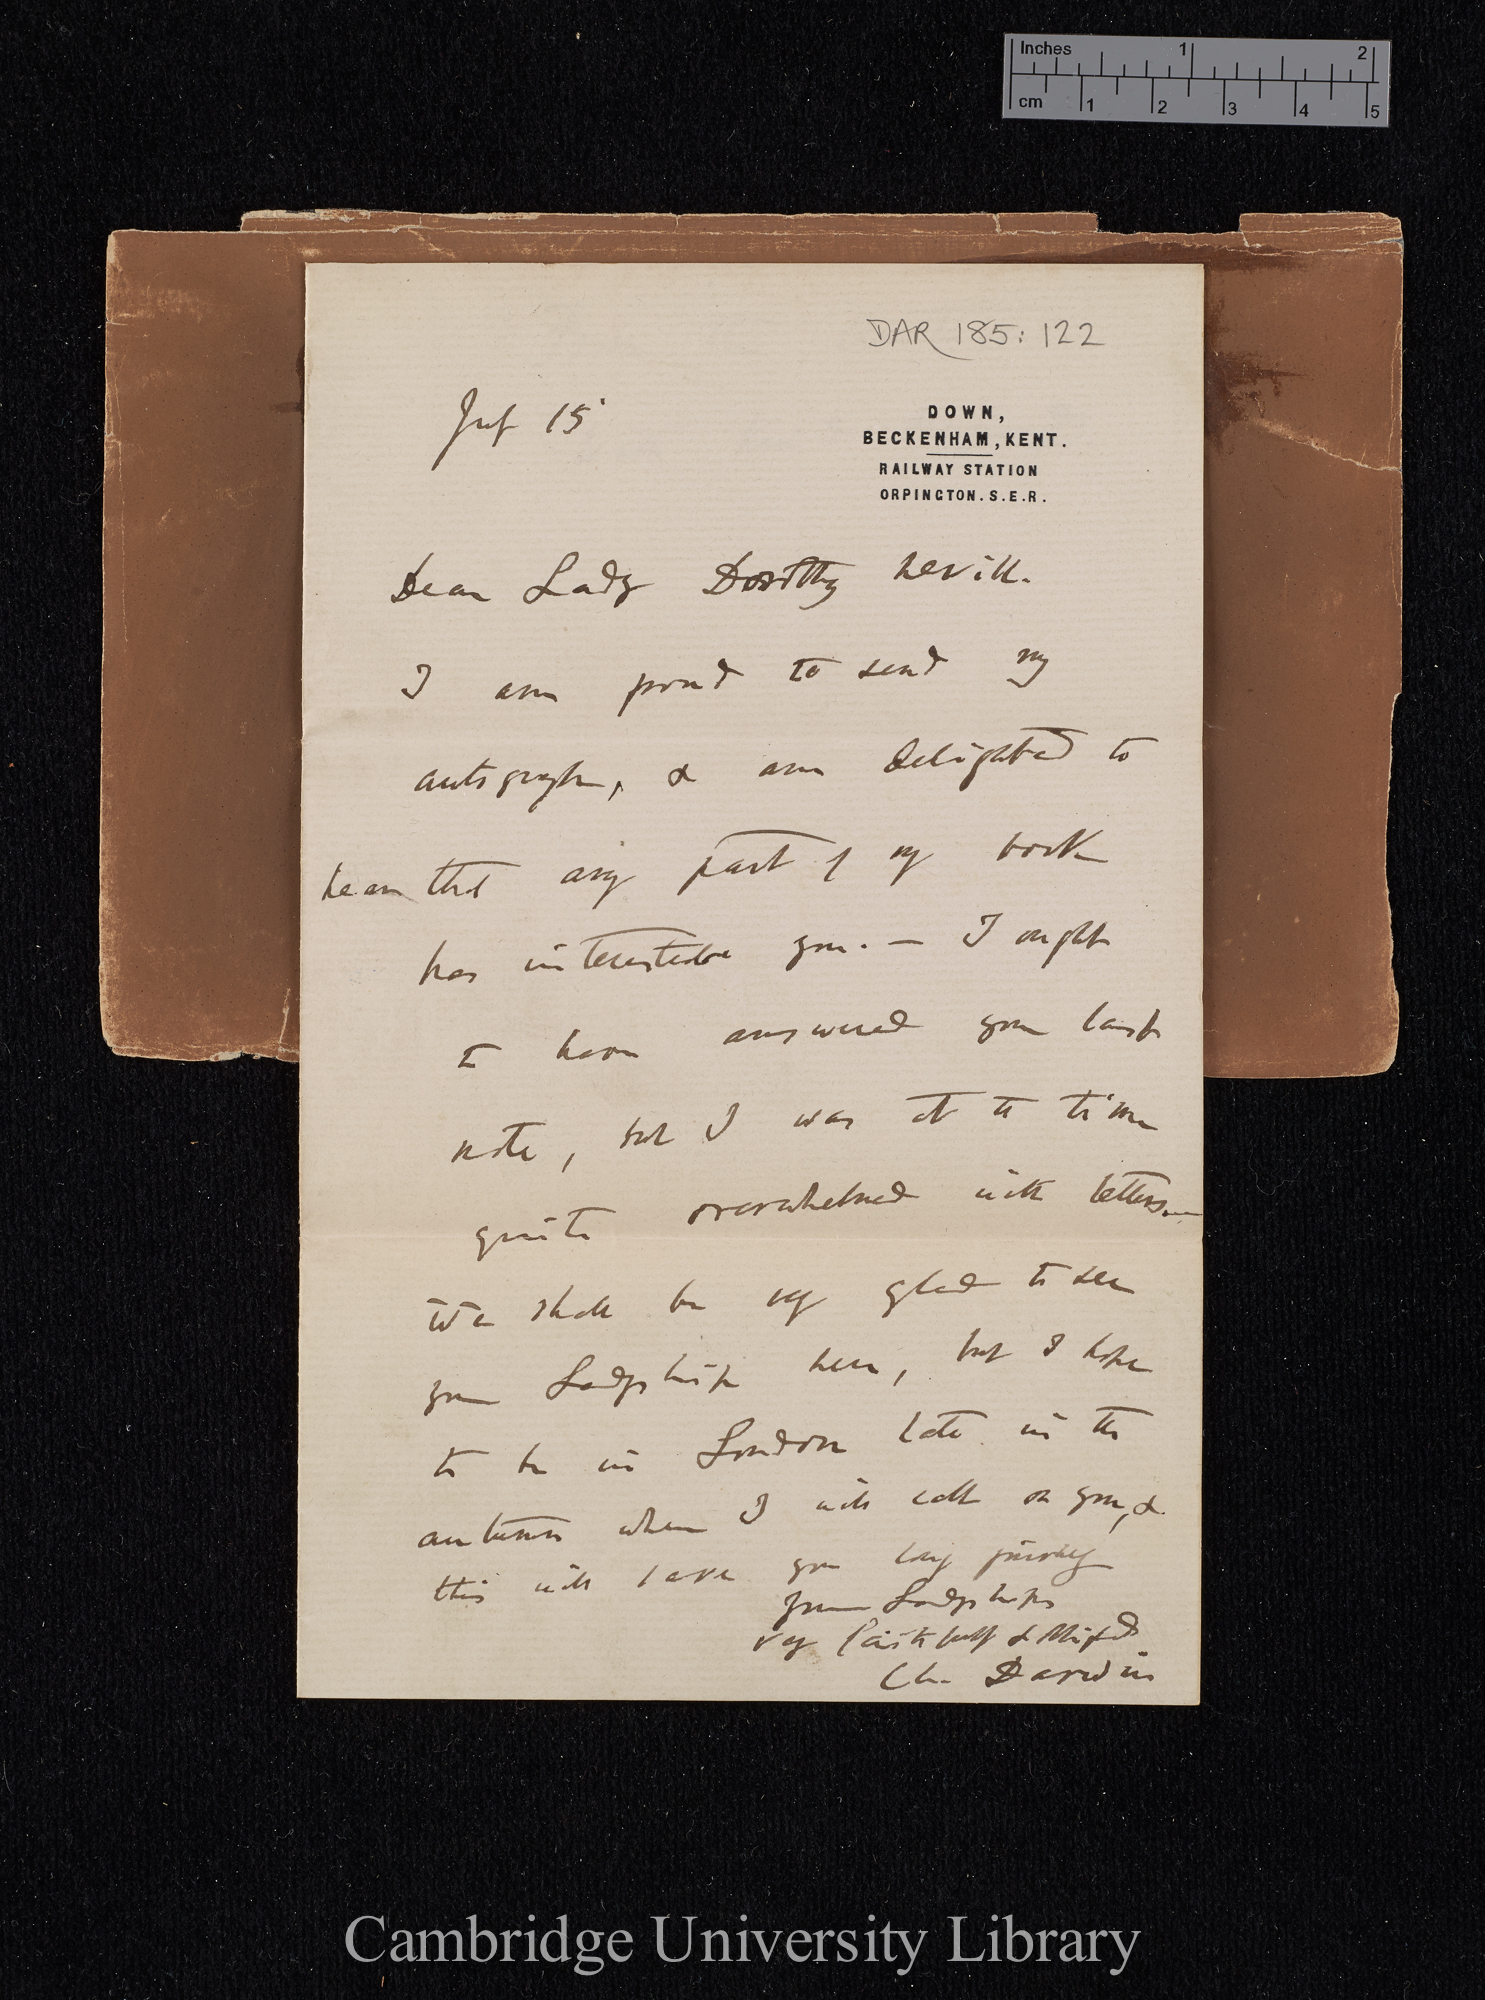 Inches 1 2
cm 1 2 3 4 5
DAR 185: 122
July 15
DOWN,
BECKENHAM, KENT.
RAILWAY STATION
ORPINGTON. S.E.R.
Dear Lady Dorothy Nevill.
I am proud to send my
autograph, & am delighted to
hear that any part of my book
has interested you. — I ought
to have answered your last
note, but I was at the time
quite overwhelmed with letters.—
We shall be very glad to see
your Ladyship here, but I hope
to be in London late in the
autumn when I will call on you, &
this will save you long journey
your Ladyships
very faithfully & obliged
Ch. Darwin
Cambridge University Library